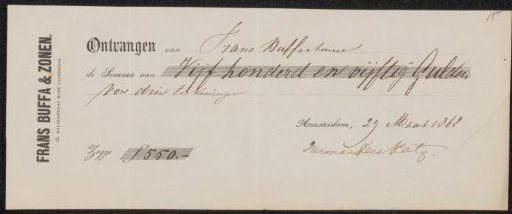 15
FRANS BUFFA & ZONEN.
Ontvangen van Frans Buffa & Zonen
de Somma van Vijf honderd en vijftig Gulden
voor drie teekeningen
Amsterdam, 29 Maart 1868
Zegge f 550.-
Herman ten Kate